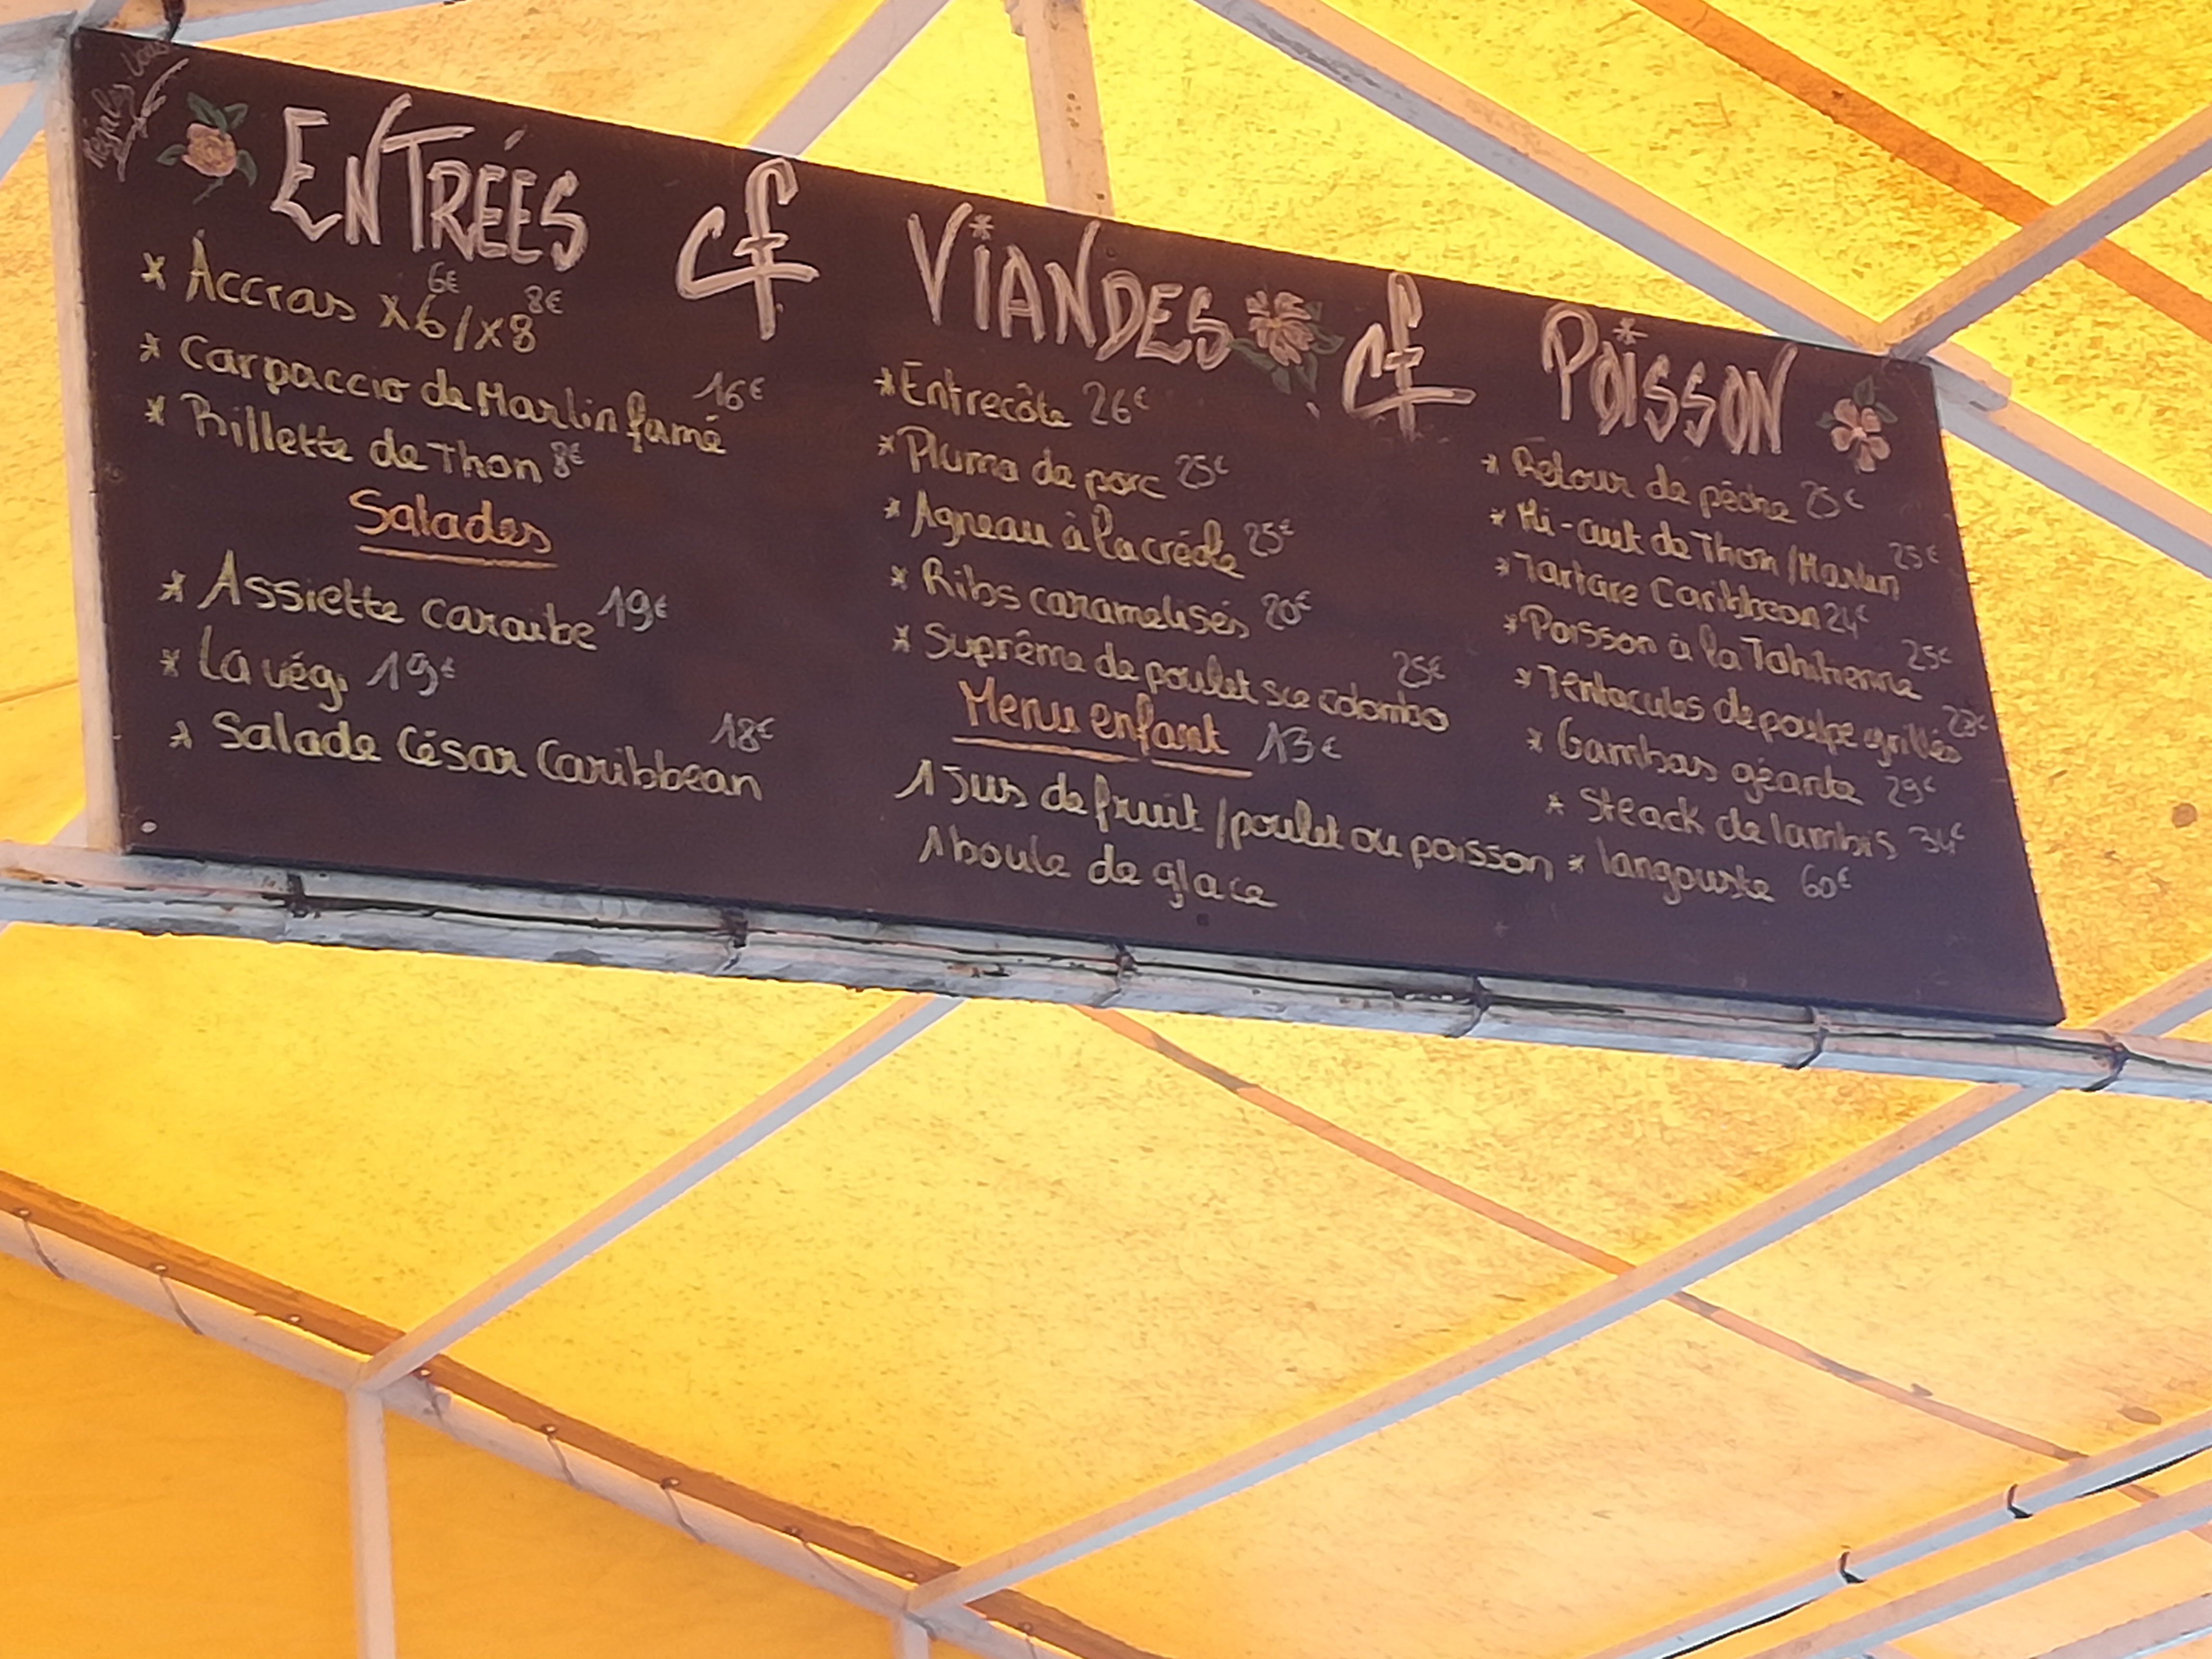 Régalez Vous
ENTRÉES
* Accras x6 6€ / x8 8€
* Carpaccio de Marlin fumé 16€
* Rillette de Thon 8€
Salades
* Assiette caraibe 19€
* La végi 19€
* Salade César Caribbean 18€
cf
VIANDES
* Entrecôte 26€
* Pluma de porc 25€
* Agneau à la créole 25€
* Ribs caramelisés 20€
* Suprême de poulet sce colombo 25€
Menu enfant 13€
1 Jus de fruit / poulet ou poisson
1 boule de glace
cf
POISSON
* Retour de pêche 25€
* Mi-cuit de Thon / Marlin 25€
* Tartare Caribbean 24€
* Poisson à la Tahitienne 25€
* Tentacules de poulpe grillés
* Gambas géante 29€
* Steack de lambis 34€
* langouste 60€